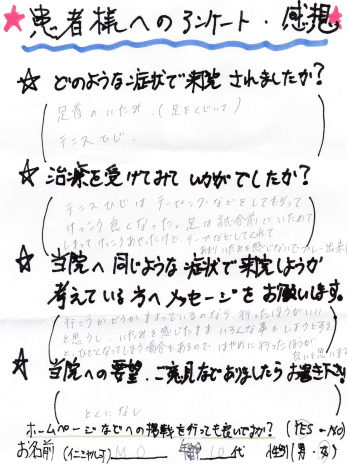 患者様へのアンケート・感想
☆ どのような症状で来院されましたか?
足首のいたみ.(足をくじいて)
テニスひじ.
☆ 治療を受けてみていかがでしたか?
テニスひじはテーピングなどをしてもらって
けっこう良くなった。足は試合前にいためて
しまってけっこうあせったけど、テーピングなどしてくれて
あまりいたみを感じないでプレー出来た
☆ 当院へ同じような症状で来院しようか
考えている方へメッセージをお願いします。
行こうかどうかまよっているのなら、行ったほうがいい
と思うし、いたみを感じたままいろんな事をしようとする
とひどくなってしまう場合もあるので、はやめに行ったほうが
良いと思います
☆ 当院への要望、ご意見などありましたらお書き下さい
とくになし
ホームページなどへの掲載を行っても良いですか? (YES - NO)
お名前(イニシャル可) M.O 年齢 10代 性別(男・女)